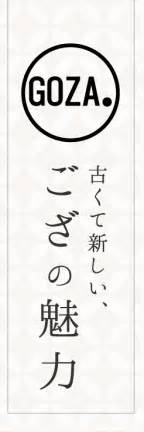 GOZA.
古くて新しい、
ござの魅力